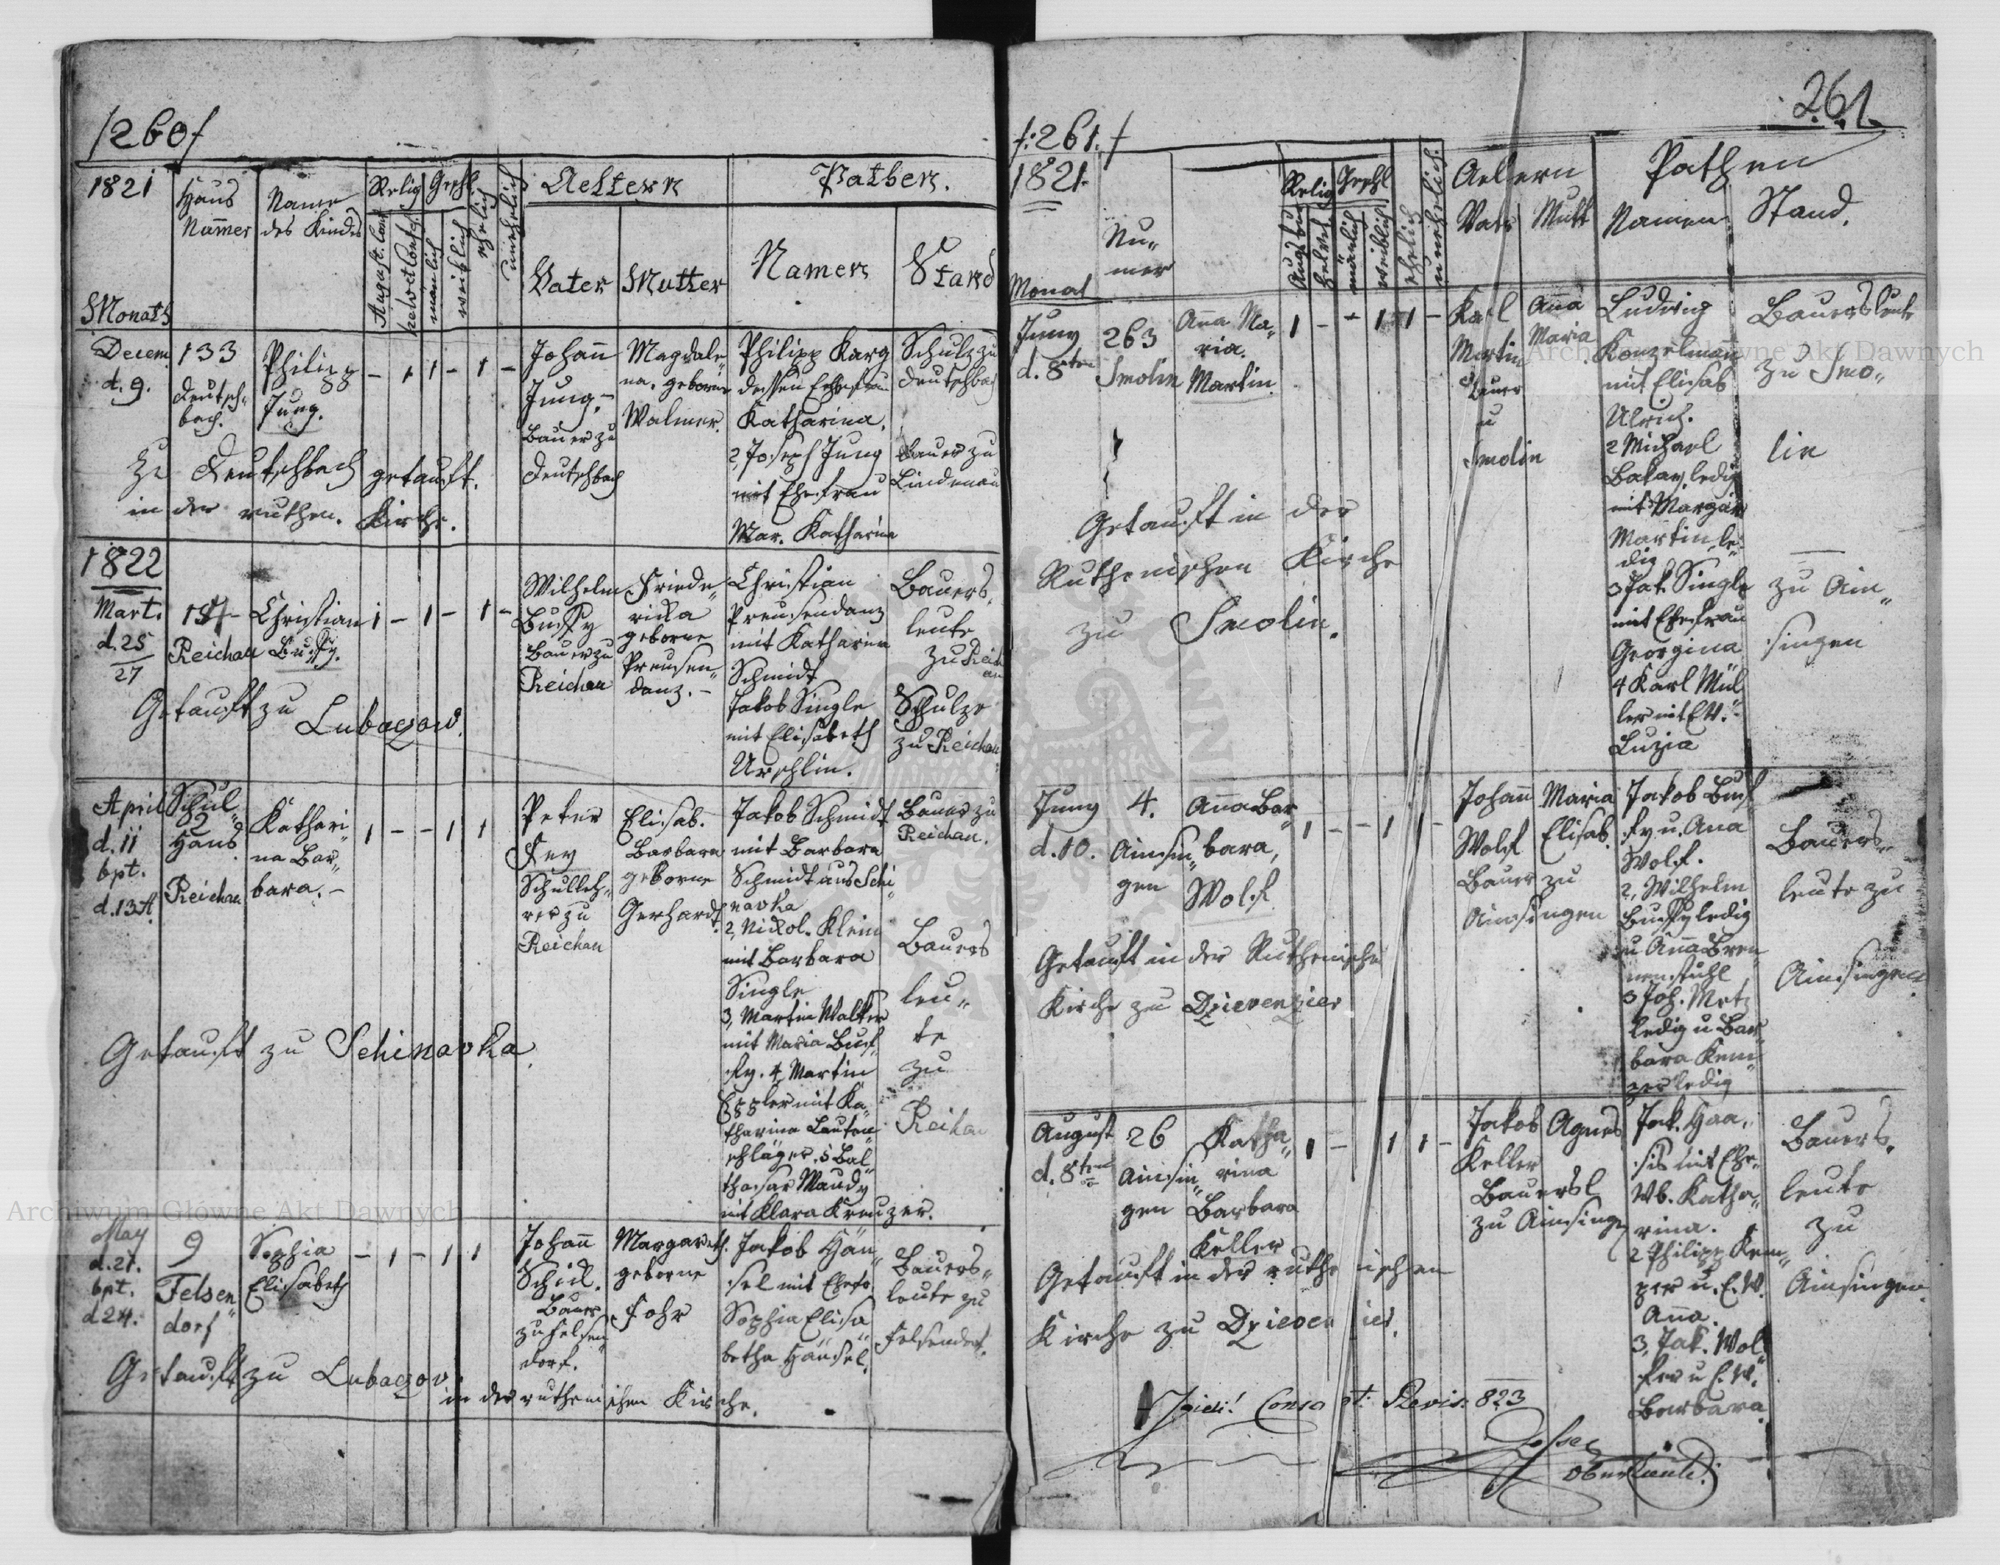 /260/
1821
Haus
Nummer
Name
des Kindes
Relig
Geschl.
August. Conf.
helvet Confes.
mänlich
weiblich
ehelich
unehelich
Aeltern
Pathen.
Monath
Vater
Mutter
Namen
Stand
Decem
d. 9.
133
Deutsch-
bach.
Philipp
Jung.
- 1 1 - 1 -
Johann
Jung.-
Bauer zu
Deutschbach
Magdale-
na, geborne
Walmer.
Philipp Karg
dessen Ehefrau
Katharina.
2, Joseph Jung
mit Ehefrau
Mar. Katharina
Schulz zu
Deutschbach
Bauer zu
Lindenau
Zu Deutschbach getauft.
in der ruthen. Kirche.
1822
Mart.
d. 25
27
Reichau
Christian
Bussy.
1 - 1 - 1 -
Wilhelm
Bussy
Bauer zu
Reichau
Friede-
rika
geborne
Preusen-
danz.-
Christian
Preusendanz
mit Katharina
Schmidt
Jakob Single
mit Elisabeth
Urschlin.
Bauers-
leute
zu Reich
au
Schulze
zu Reichau
Getauft zu Lubaczow.
April
d. 11
bpt.
d. 13.
Schul-
Haus
Reichau
Kathari-
na Bar-
bara.-
1 - - 1 1
Peter
Fey
Schulleh-
rer zu
Reichau
Elisab.
Barbara
geborne
Gerhardt.
Jakob Schmidt
mit Barbara
Schmidt aus Schi
navka
2, Nickol. Klein
mit Barbara
Single
3, Martin Walter
mit Maria Bus-
sy. 4, Martin
Eppler mit Ka-
tharina Lauten-
schläger. 5 Bal-
thasar Maudy
mit Klara Kreuzer.
Bauer zu
Reichau.
Bauers
leu-
te
zu
Reichau
Getauft zu Schinavka
May
d. 21.
bpt.
d 24.
9
Felsen-
dorf
Sophia
Elisabeth
- 1 - 1 1
Johann
Schid.
Bauer
zu Felsen-
dorf.
Margareth.
geborne
Fohr
Jakob Hän-
sel mit Ehefr.
Sophia Elisa
betha Hänsel.
Bauers-
leute zu
Felsendorf.
Getauft zu Lubaczov
in der ruthenischen Kirche.
261.
/:261./
1821.
Monat
Nu-
mer
Relig
Geschl
Augsbu
helvet
mänlich
weiblich
ehelich
unehelich.
Aeltern
Vater
Mutt
Pathen
Namen
Stand.
Juny
d. 8ten
263
Smolin
Anna Ma-
ria.
Martin
1 - - 1 1 -
Karl
Martin
Bauer
u
Smolin
Ana
Maria
Ludwig
Konzelmann
mit Elisab
Ulrich.
2 Michael
ledig
mit Margar
Martin, le-
dig
3 Jak. Single
mit Ehefrau
Georgina
4 Karl Mül
ler mit EW.
Luzia
Bauersleute
zu Smo-
lin
zu Ain-
singen
Getauft in der
Ruthenischen Kirche
zu Smolin.
Juny
d. 10.
4.
Ainsin-
gen
Anna Bar-
bara,
Wolf
1 - - 1 1 -
Johann
Wolf
Bauer zu
Ainsingen
Maria
Elisab.
Jakob Bus
sy u. Ana
Wolf.
2, Wilhelm
Bussy ledig
u Anna Bren-
nenstuhl
3 Joh. Metz
ledig u Bar-
bara Kem-
per ledig
Bauers-
leute zu
Ainsingen
Getauft in der Ruthenische
Kirche zu Dzievenzier
August
d. 8ten
26
Ainsin-
gen
Katha-
rina
Barbara
Keller
1 - 1 1 -
Jakob
Keller
Bauersl
zu Ainsinge
Agnes
Jak. Haa-
sis mit Ehe-
Wb. Katha-
rina.
2 Philipp Kem-
per u. E.W.
Anna.
3, Jak. Wol
fer u E.W.
Barbara
Bauers-
leute
zu
Ainsingen.
Getauft in der ruthenischen
Kirche zu Dzievenzier.
Revis. 823
Archiwum Główne Akt Dawnych
Archiwum Główne Akt Dawnych